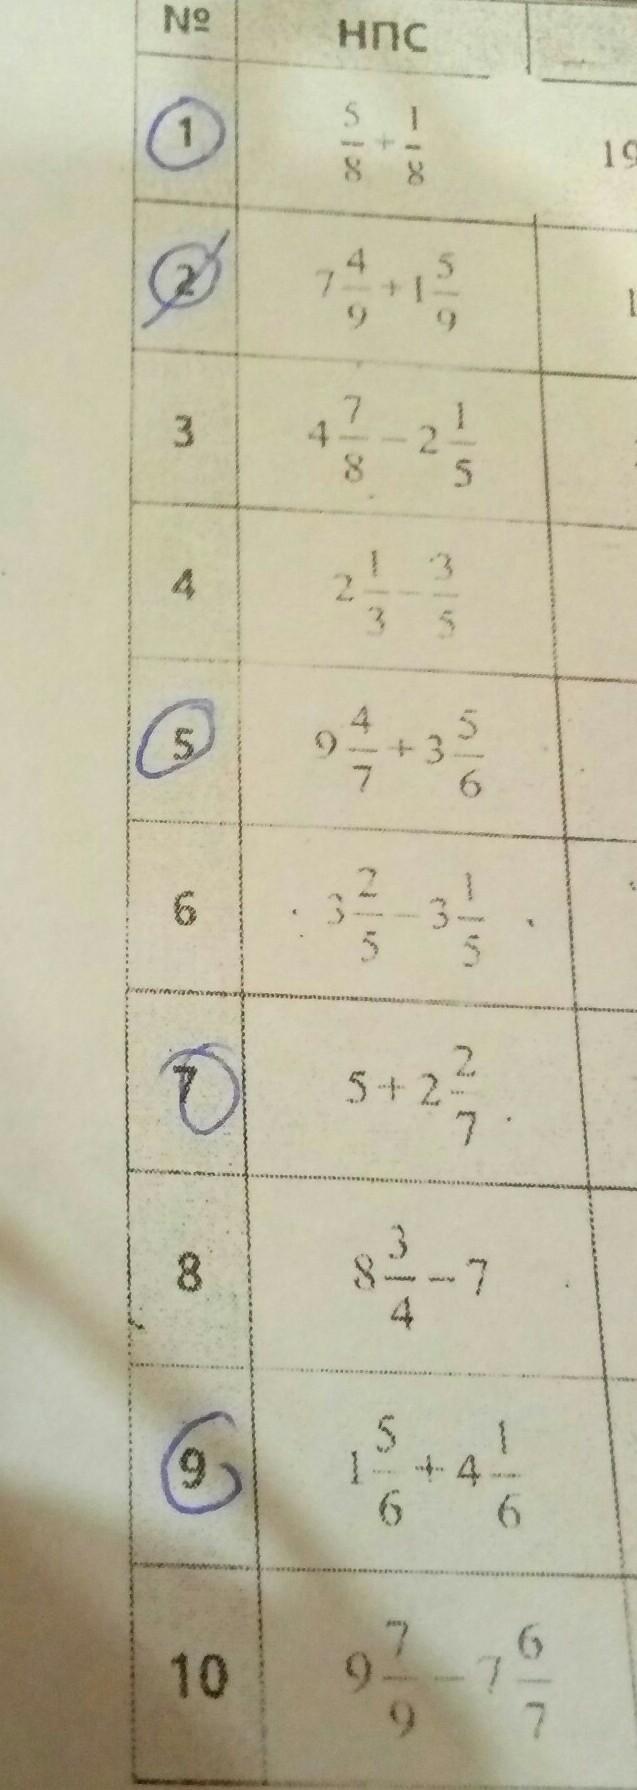 № НПС
1 5/8 + 1/8 19
2 7 4/9 + 1 5/9 1
3 4 7/8 − 2 1/5
4 2 1/3 − 3/5
5 9 4/7 + 3 5/6
6 3 2/5 − 3 1/5
7 5 + 2 2/7
8 8 3/4 − 7
9 1 5/6 + 4 1/6
10 9 7/9 − 7 6/7